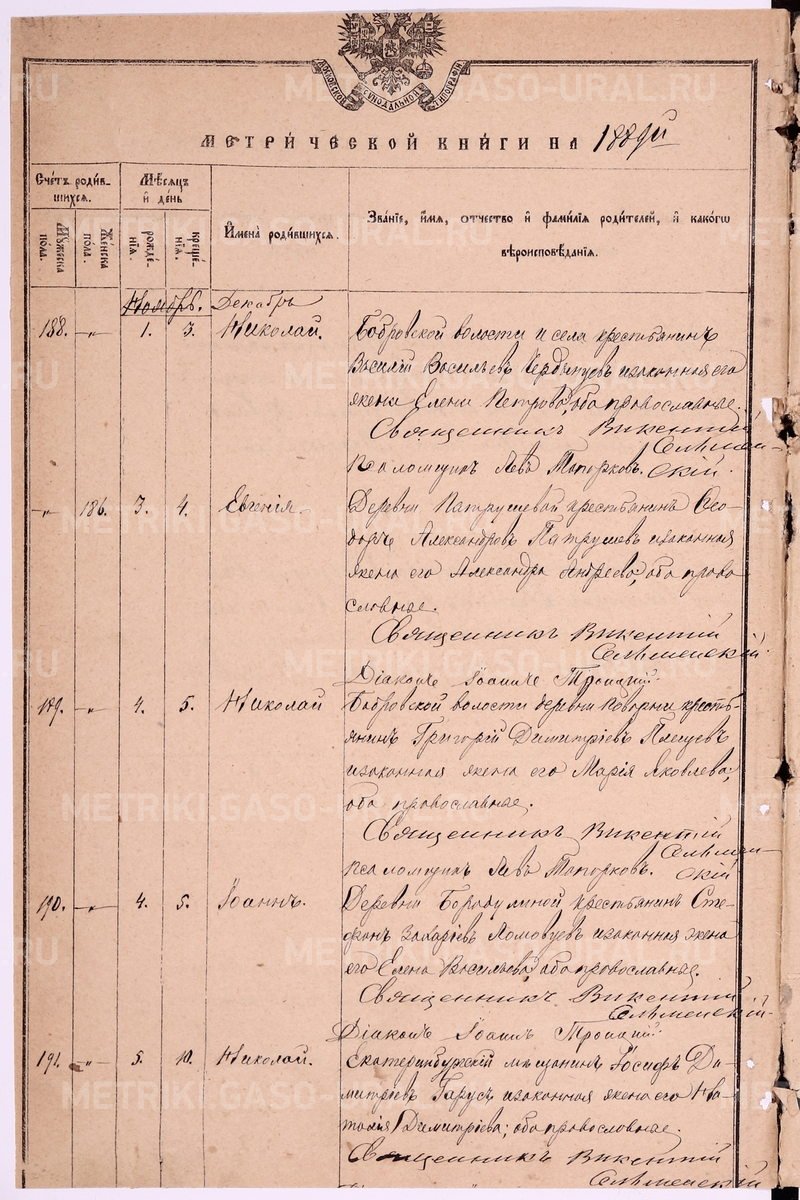 МОСКОВСКОЙ СѴНОДАЛЬНОЙ ТИПОГРАФІИ
МЕТРИЧЕСКОЙ КНИГИ НА 1889й
Счетъ родившихся.
Мѣсяцъ и день
Имена родившихся.
Званіе, имя, отчество и фамилія родителей, и какогω вѣроисповѣданія.
Мужеска пола.
Женска пола.
рожденія.
крещенія.
Ноябрь. Декабрь
188. -„- 1. 3. Николай. Бобровской волости и села крестьянинъ
Василій Васильевъ и законная его
жена Елена Петрова, оба православные.
Священникъ Викентій
Псаломщикъ Левъ Топорковъ.
-„- 186. 3. 4. Евгенія. Деревни Патрушевой крестьянинъ Ѳео-
доръ Александровъ Патрушевъ и законная
жена его Александра Андреева, оба право-
славные.
Священникъ Викентій
Діаконъ Іоаннъ Троицкій.
189. -„- 4. 5. Николай Бобровской волости деревни кресть-
янинъ Григорій Димитріевъ Плещевъ
и законная жена его Марія Яковлева,
оба православные.
Священникъ Викентій
Псаломщикъ Левъ Топорковъ.
190. -„- 4. 5. Іоаннъ. Деревни Бородулиной крестьянинъ Сте-
фанъ Захаріевъ Ломовцевъ и законная жена
его Елена Васильева, оба православные.
Священникъ Викентій
Діаконъ Іоаннъ Троицкій.
191. -„- 5. 10. Николай. Екатеринбургскій мѣщанинъ Іосифъ Ди-
митріевъ Гарусъ и законная жена его На-
талія Димитріева; оба православные.
Священникъ Викентій
METRIKI.GASO-URAL.RU